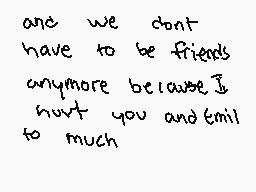 and we dont
have to be friends
anymore because I
hurt you and Emil
to much